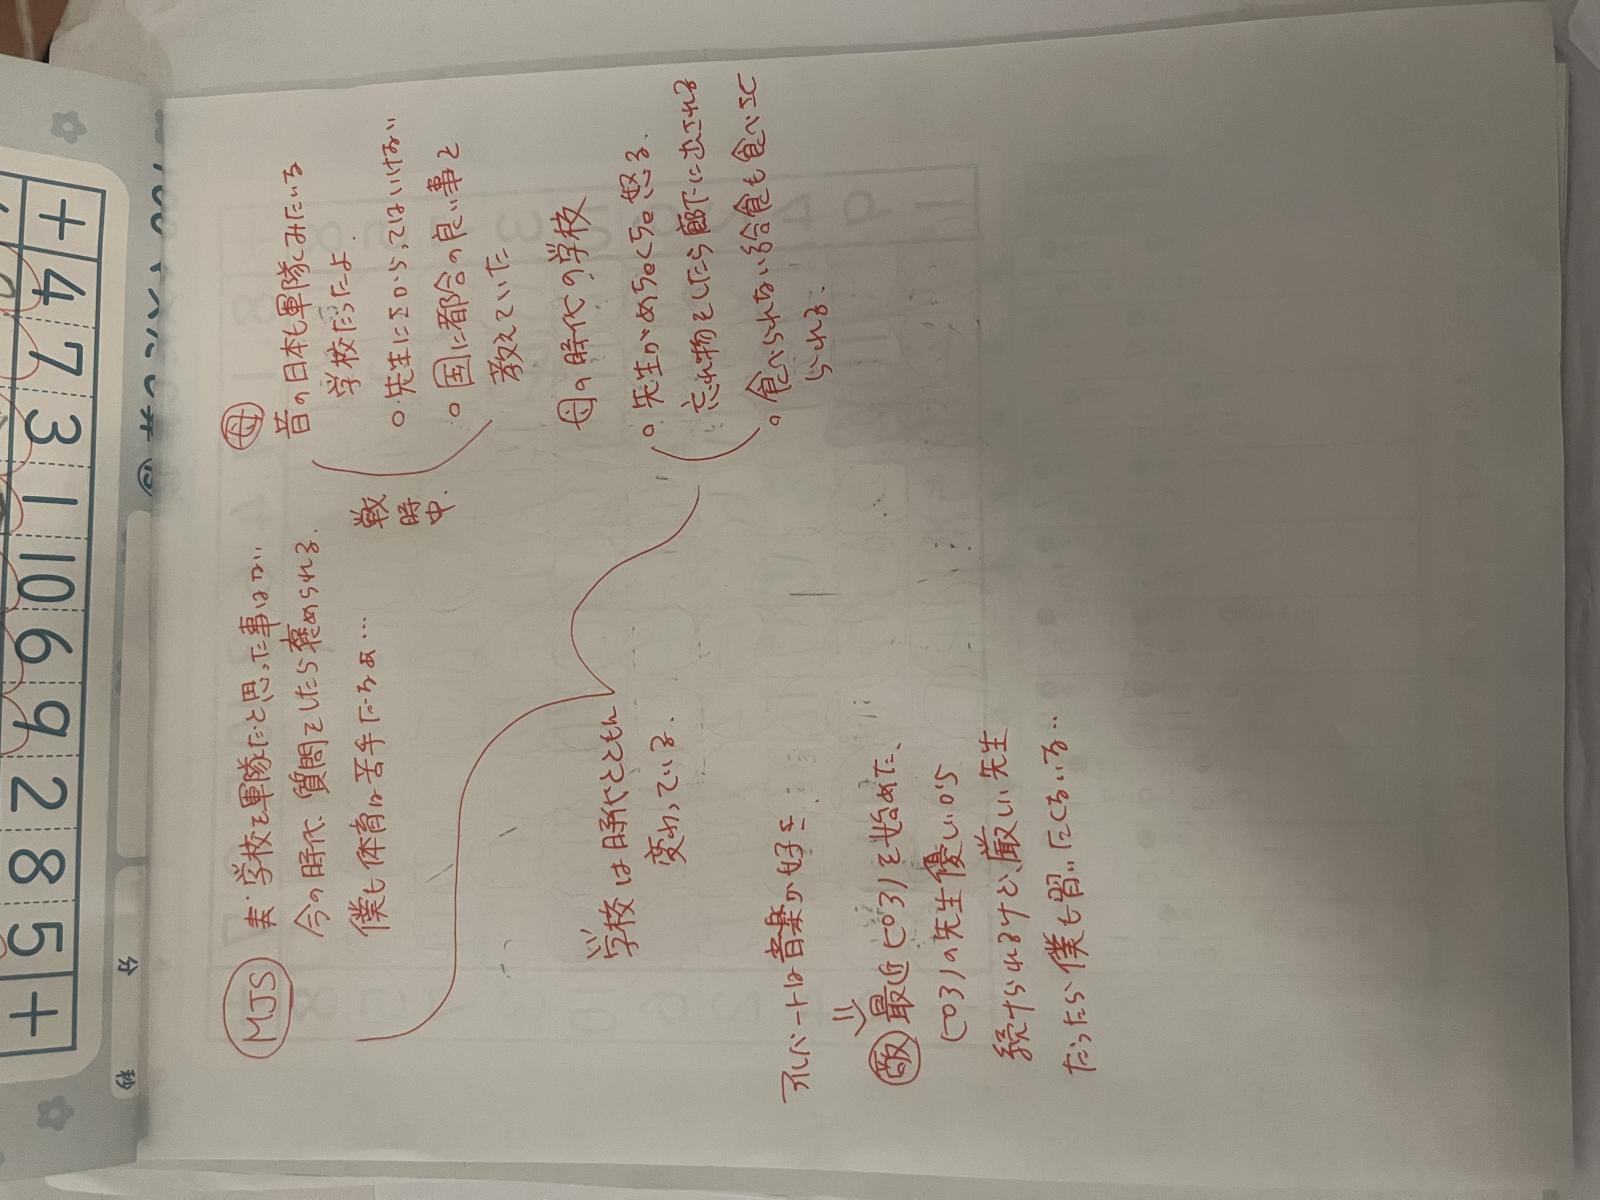 MJS
去、学校を軍隊だと思った事はない
今の時代、質問をしたら褒められる。
僕も体育は苦手だなぁ…
母
昔の日本も軍隊みたいな
学校だったよ
。先生にさからってはいけない
。国に都合の良い事を
教えていた
戦時中.
母の時代の学校
。先生がめちゃくちゃ怒る.
忘れ物をしたら廊下に出される
。食べられない給食も食べさせ
られる.
学校は時代とともに
変わっている.
アルバートは音楽が好き
敵 最近ピアノを始めた、
ピアノの先生優しいから
続けられるけど、厳しい先生
だったら僕も習いたくないな…
+ 4 7 3 1 10 6 9 2 8 5 +
100マス
分
秒